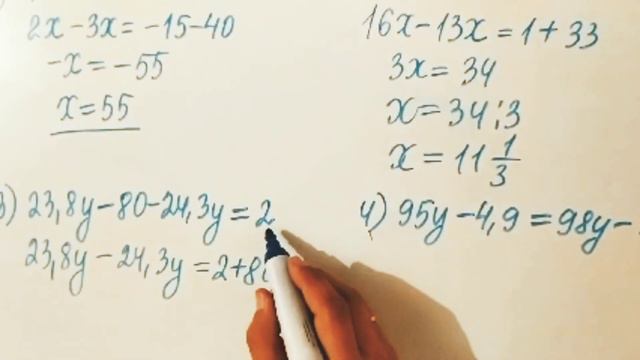 2x - 3x = -15 - 40
-x = -55
x = 55
16x - 13x = 1 + 33
3x = 34
x = 34 : 3
x = 11 1/3
3) 23,8y - 80 - 24,3y = 2
23,8y - 24,3y = 2 + 8
4) 95y - 4,9 = 98y -